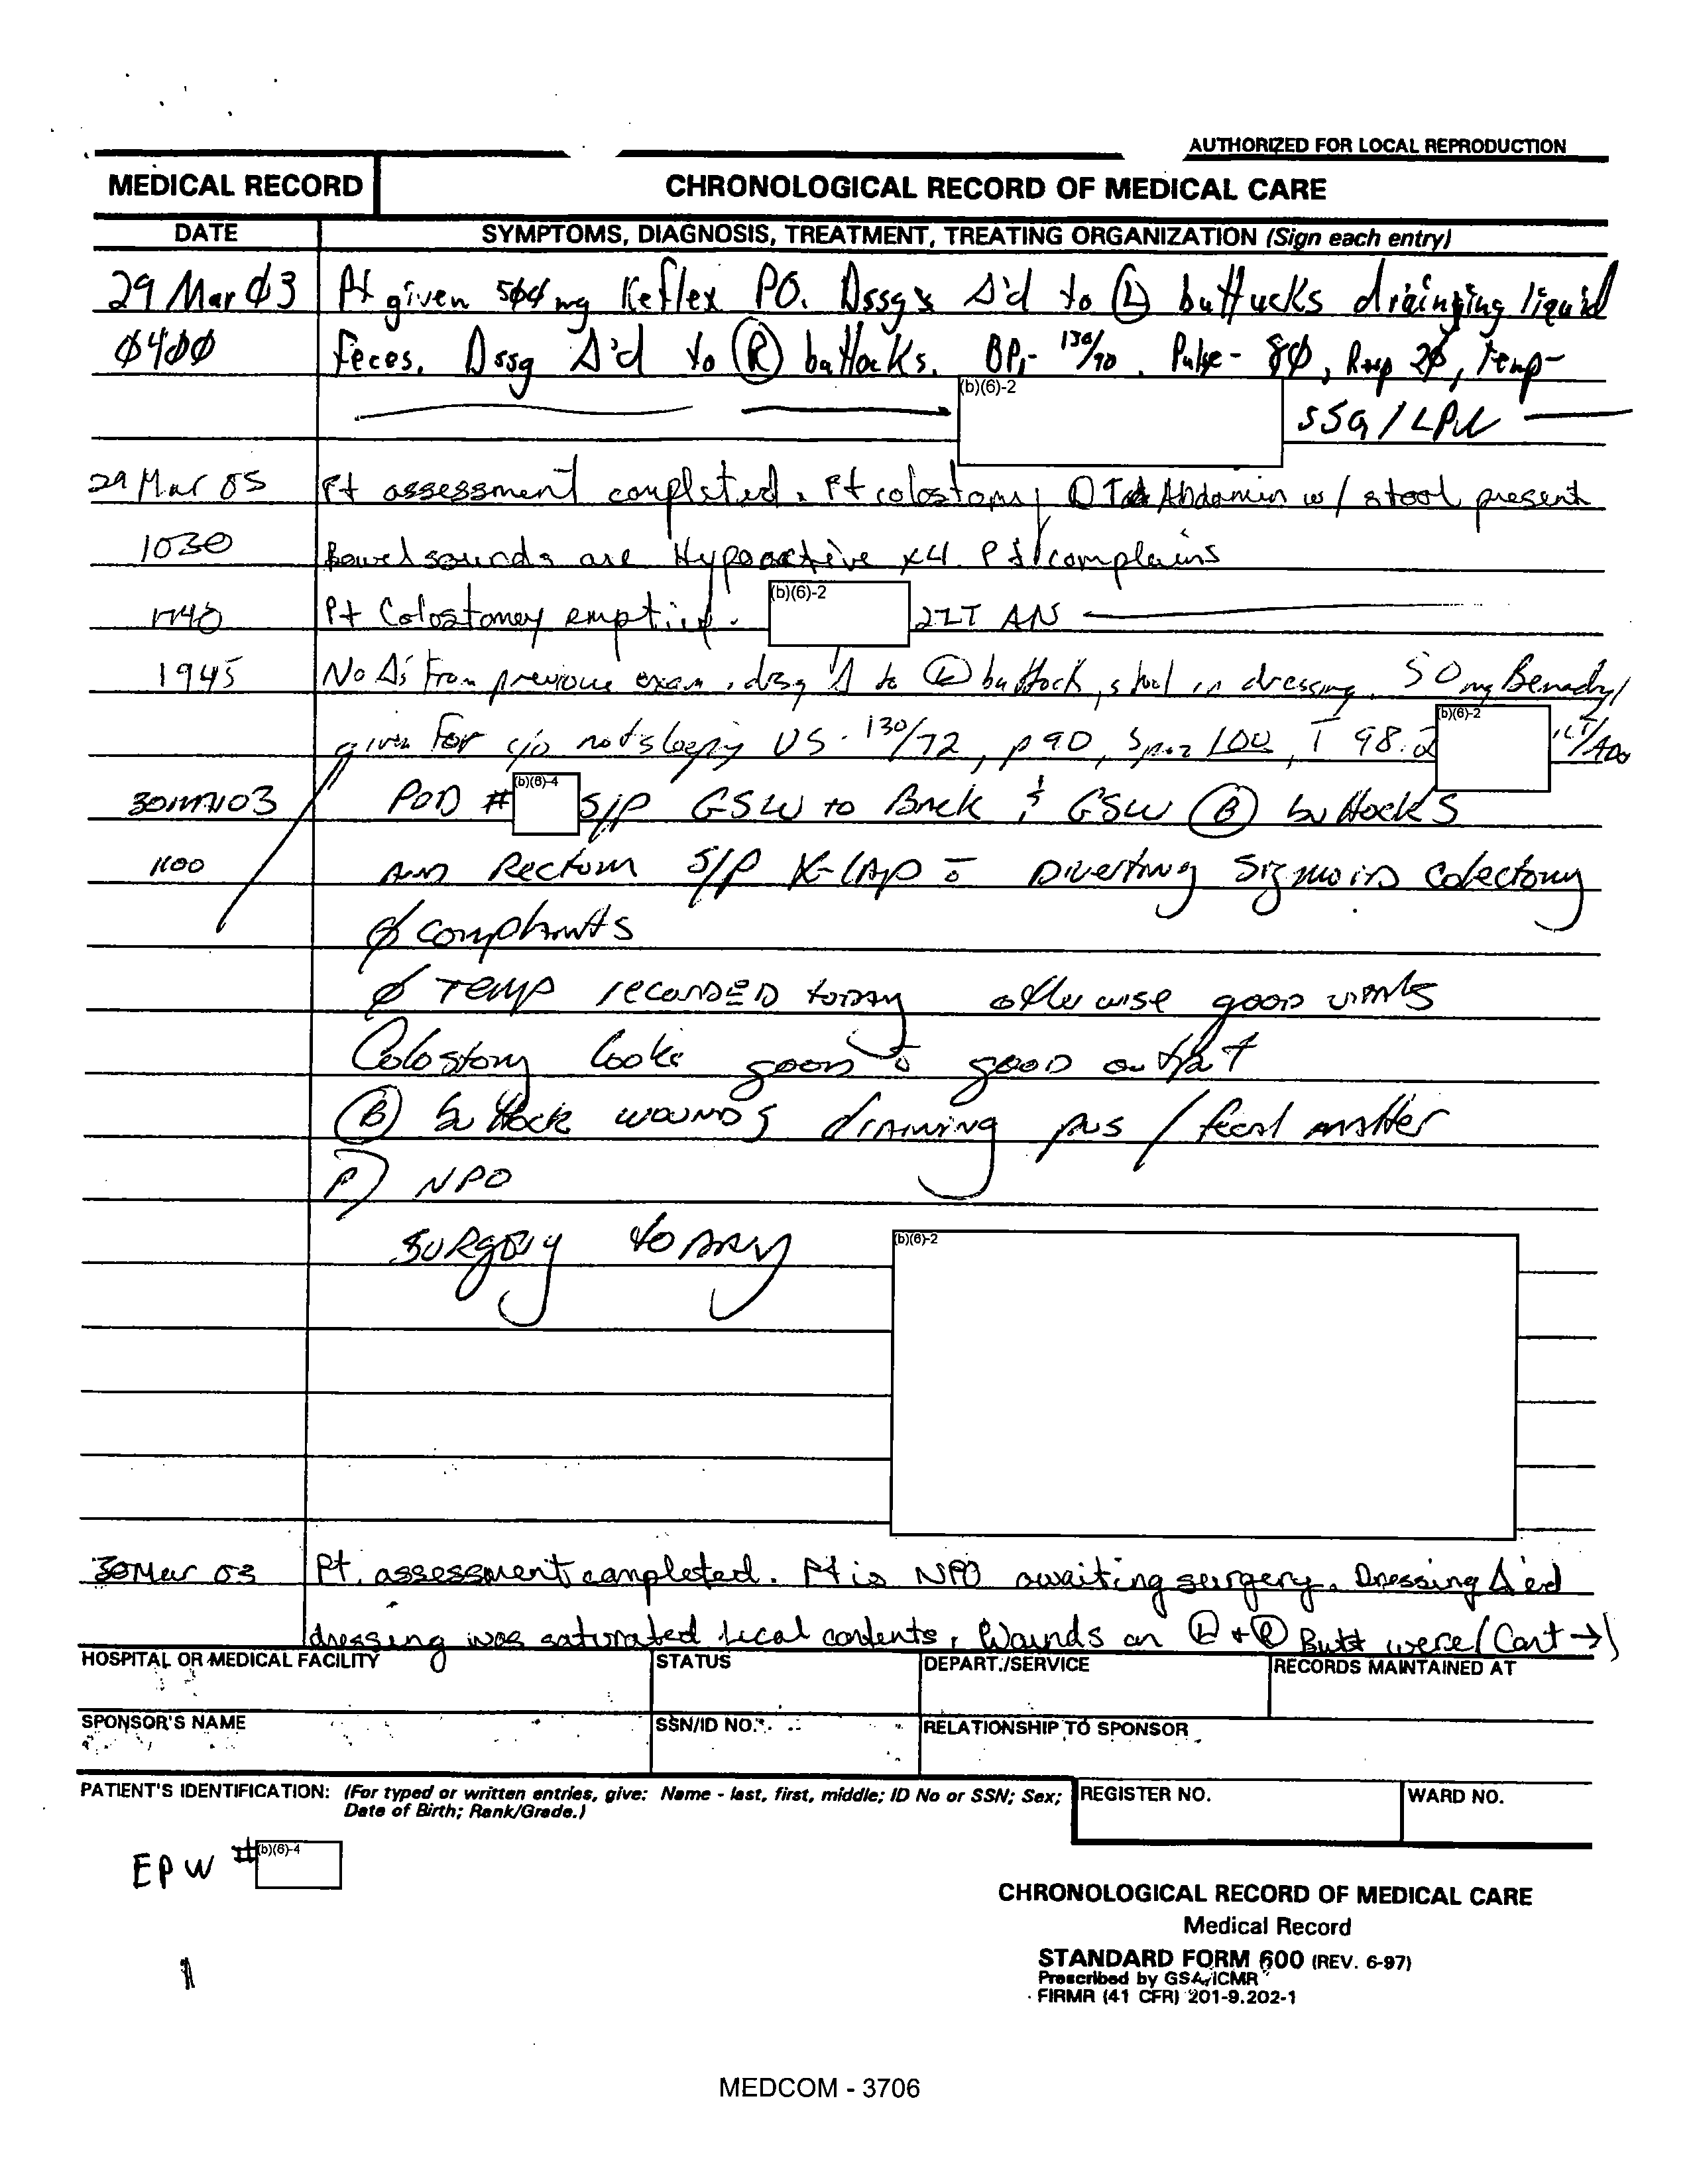 AUTHORIZED FOR LOCAL REPRODUCTION
MEDICAL RECORD CHRONOLOGICAL RECORD OF MEDICAL CARE
DATE SYMPTOMS, DIAGNOSIS, TREATMENT, TREATING ORGANIZATION (Sign each entry)
29 Mar Ø3 Pt given 5ØØ mg Keflex PO. Dssgs Δ'd to Ⓛ buttucks drainging liquid
Ø4ØØ Feces. Dssg Δ'd to Ⓡ buttocks. BP- 130/70. Pulse- 8Ø, Resp 2Ø, Temp-
(b)(6)-2 SSG/LPN
29 Mar 03 Pt assessment completed. Pt colostomy Abdomin w/ stool present
1030 Bowel sounds are Hypoactive x4 Pt complains
1740 Pt Colostomey emptied. (b)(6)-2 2LT AN
1945 No Δ's From previous exam. drsg Δ to Ⓛ buttock, stool in dressing. 50 mg Benadryl
given For c/o not sleepy VS- 130/72, p 90, SpO2 100, T 98.2 (b)(6)-2
30 MAR 03 POD # (b)(6)-4 S/P GSW to Back & GSW Ⓑ buttocks
1100 AND Rectum S/P X-LAP c̄ Diverting Sigmoid colectomy
Ø complaints
Ø Temp recorded today otherwise good vitals
Colostomy looks good c̄ good output
Ⓑ buttock wounds draining pus / fecal matter
P) NPO
Surgery today (b)(6)-2
30 Mar 03 Pt. assessment completed. Pt is NPO awaiting surgery. Dressing Δ'ed
dressing was saturated fecal contents. Wounds on Ⓛ + Ⓡ Butt were (Cont →)
HOSPITAL OR MEDICAL FACILITY STATUS DEPART./SERVICE RECORDS MAINTAINED AT
SPONSOR'S NAME SSN/ID NO. RELATIONSHIP TO SPONSOR
PATIENT'S IDENTIFICATION: (For typed or written entries, give: Name - last, first, middle; ID No or SSN; Sex; REGISTER NO. WARD NO.
Date of Birth; Rank/Grade.)
EPW # (b)(6)-4
CHRONOLOGICAL RECORD OF MEDICAL CARE
Medical Record
STANDARD FORM 600 (REV. 6-97)
Prescribed by GSA/ICMR
FIRMR (41 CFR) 201-9.202-1
1
MEDCOM - 3706